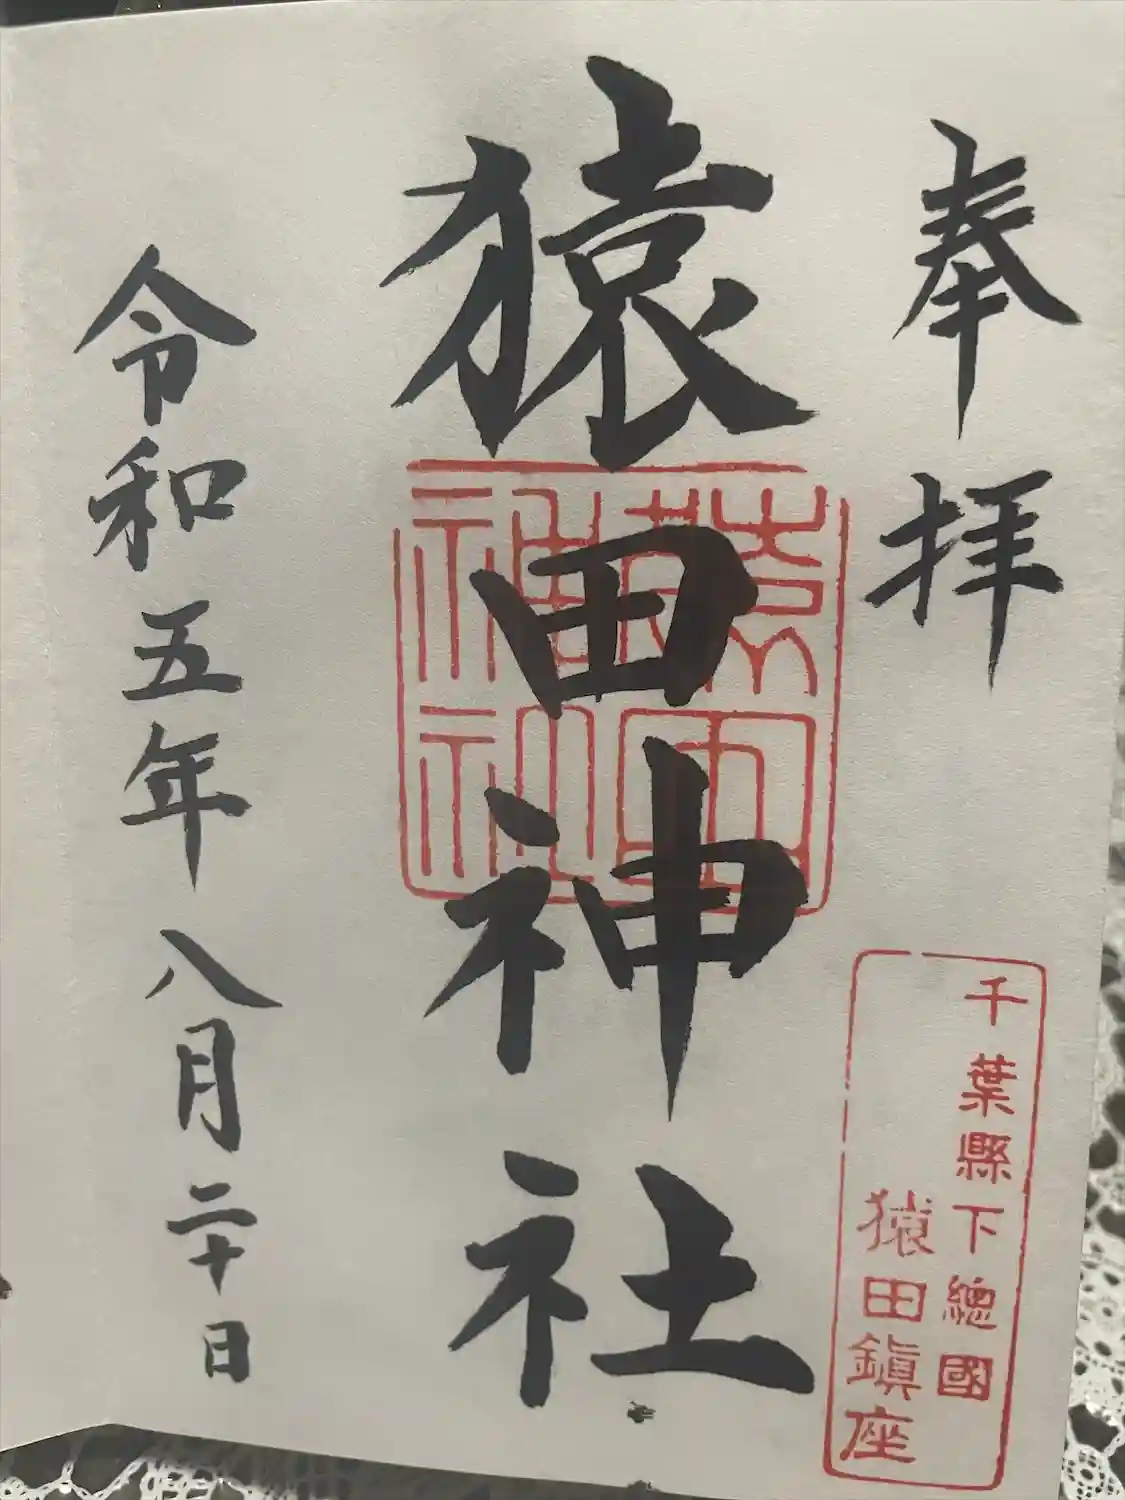 奉拝
千葉縣下總國
猿田鎭座
猿田神社
猿田神社
令和五年八月二十日